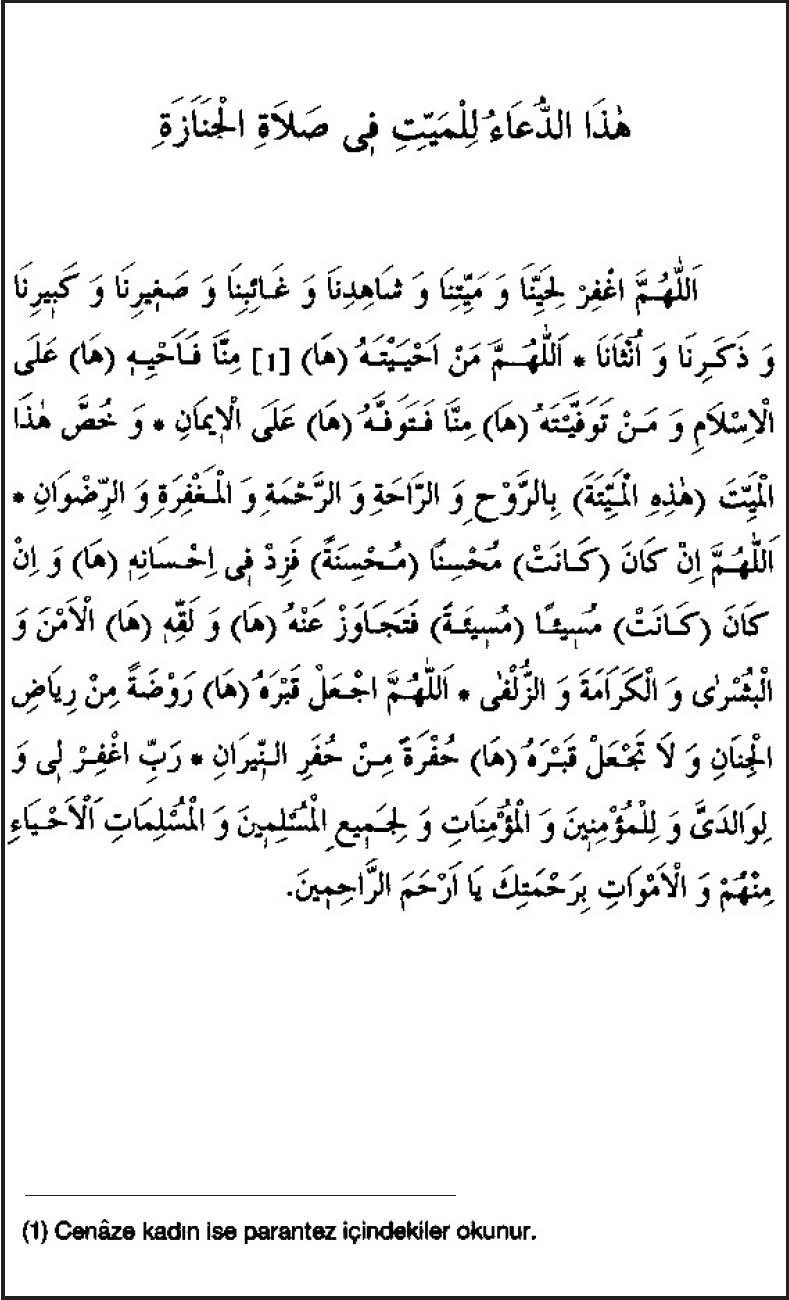 هٰذَا الدُّعَاءُ لِلْمَيِّتِ فِى صَلَاةِ الْجَنَازَةِ
اَللّٰهُمَّ اغْفِرْ لِحَيِّنَا وَ مَيِّتِنَا وَ شَاهِدِنَا وَ غَائِبِنَا وَ صَغِيرِنَا وَ كَبِيرِنَا
وَ ذَكَرِنَا وَ اُنْثَانَا * اَللّٰهُمَّ مَنْ اَحْيَيْتَهُ (هَا) [1] مِنَّا فَاَحْيِهِ (هَا) عَلَى
الْاِسْلَامِ وَ مَنْ تَوَفَّيْتَهُ (هَا) مِنَّا فَتَوَفَّهُ (هَا) عَلَى الْاِيمَانِ * وَ خُصَّ هٰذَا
الْمَيِّتَ (هٰذِهِ الْمَيِّتَةَ) بِالرَّوْحِ وَ الرَّاحَةِ وَ الرَّحْمَةِ وَ الْمَغْفِرَةِ وَ الرِّضْوَانِ *
اَللّٰهُمَّ اِنْ كَانَ (كَانَتْ) مُحْسِنًا (مُحْسِنَةً) فَزِدْ فِى اِحْسَانِهِ (هَا) وَ اِنْ
كَانَ (كَانَتْ) مُسِيئًا (مُسِيئَةً) فَتَجَاوَزْ عَنْهُ (هَا) وَ لَقِّهِ (هَا) الْاَمْنَ وَ
الْبُشْرٰى وَ الْكَرَامَةَ وَ الزُّلْفٰى * اَللّٰهُمَّ اجْعَلْ قَبْرَهُ (هَا) رَوْضَةً مِنْ رِيَاضِ
الْجِنَانِ وَ لَا تَجْعَلْ قَبْرَهُ (هَا) حُفْرَةً مِنْ حُفَرِ النِّيرَانِ * رَبِّ اغْفِرْ لِى وَ
لِوَالِدَىَّ وَ لِلْمُؤْمِنِينَ وَ الْمُؤْمِنَاتِ وَ لِجَمِيعِ الْمُسْلِمِينَ وَ الْمُسْلِمَاتِ اَلْاَحْيَاءِ
مِنْهُمْ وَ الْاَمْوَاتِ بِرَحْمَتِكَ يَا اَرْحَمَ الرَّاحِمِينَ.
(1) Cenâze kadın ise parantez içindekiler okunur.